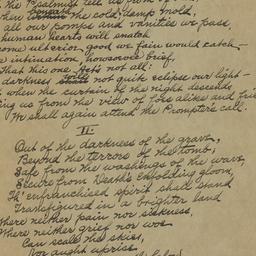 the Psalmist tell us from of
beneath
here within the cold, damp mold,
all our pomps and vanities we pass,
human hearts will snatch
some ulterior good we fain would catch —
intimation, howsoever brief,
That this one lets not all:
darkness will not quite eclipse our light —
when the curtain of the night descends
us from the view of foes alike and
We shall again attend the Prompter's call.
II.
Out of the darkness of the grave,
Beyond the terrors of the tomb,
Safe from the wash of the wave,
Secure from Death's enfolding gloom,
Th' enfranchised spirit shall stand
Transfigured in a brighter land
Where neither pain nor sickness,
Where neither grief nor woe
Can scale the skies,
Nor aught uprise